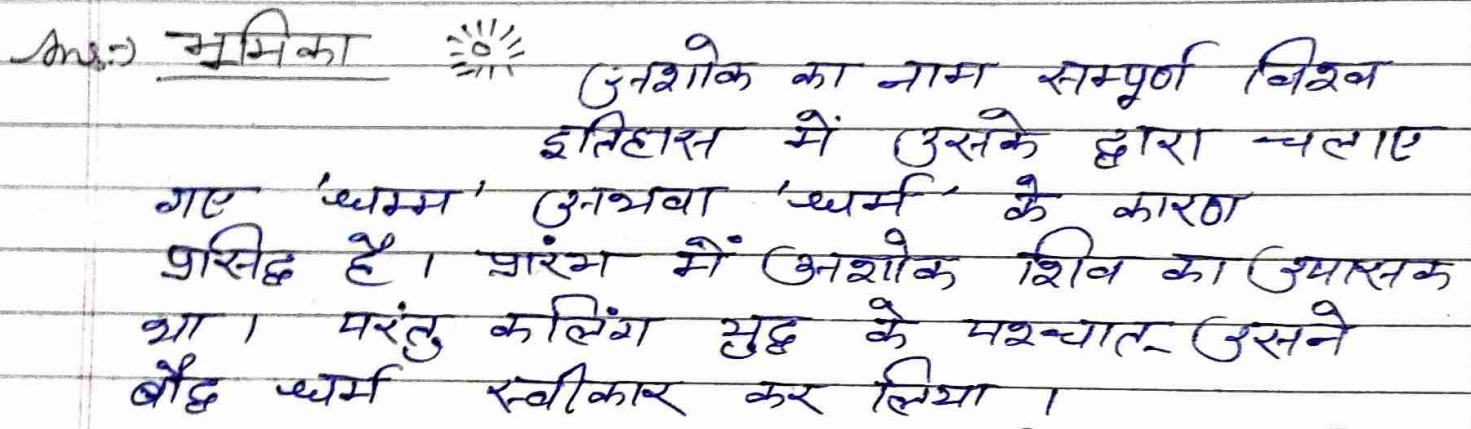 Ans:-) भूमिका
अशोक का नाम सम्पूर्ण विश्व
इतिहास में उसके द्वारा चलाए
गए 'धम्म' अथवा 'धर्म' के कारण
प्रसिद्ध है। प्रारंभ में अशोक शिव का उपासक
था। परंतु कलिंग युद्ध के पश्चात् उसने
बौद्ध धर्म स्वीकार कर लिया।